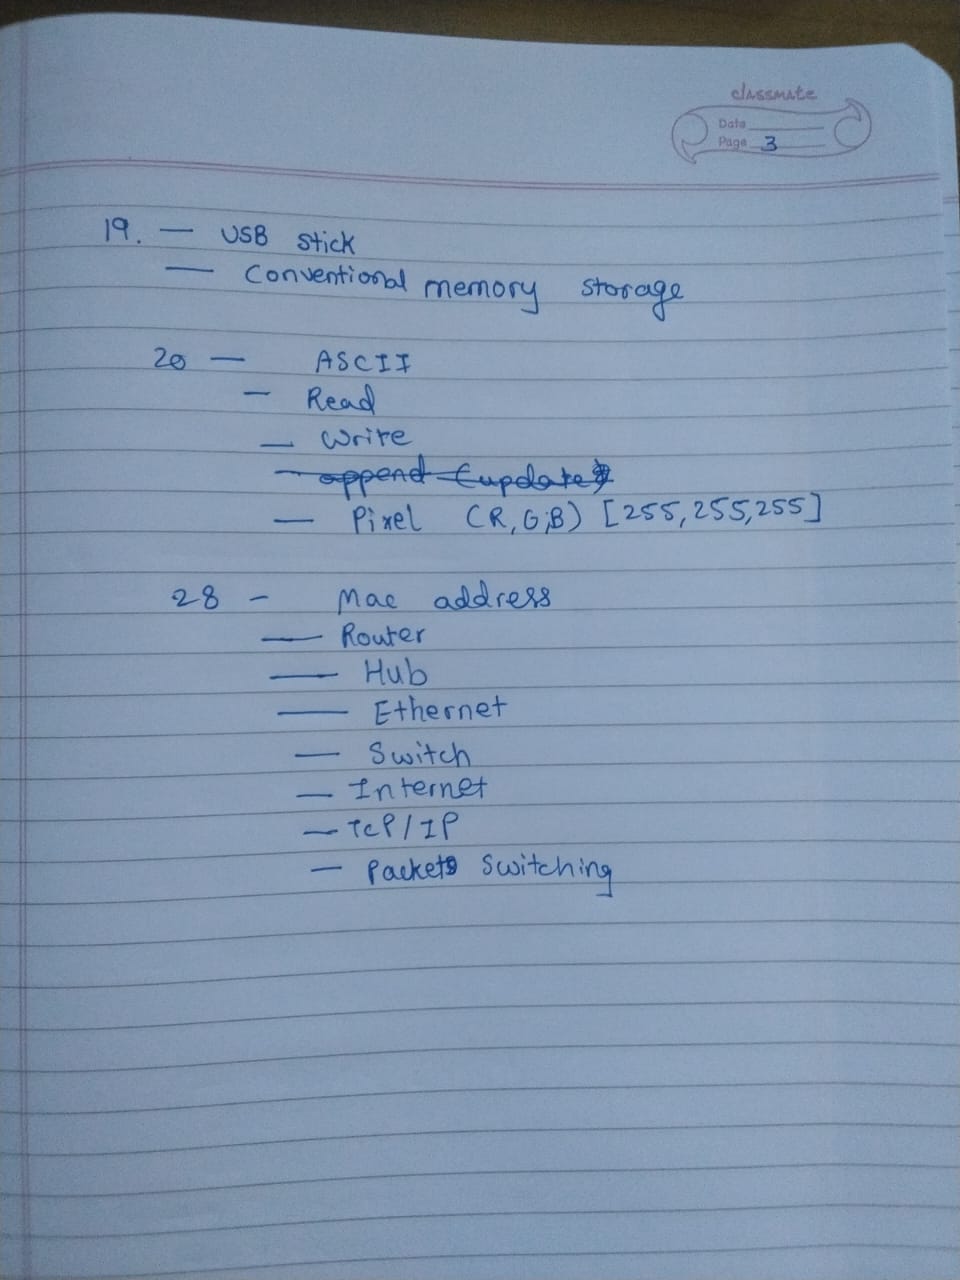 classmate
Date
Page 3
19. — USB stick
— Conventional memory storage
20 — ASCII
— Read
— Write
— append (update)
— Pixel (R,G,B) [255,255,255]
28 - Mac address
— Router
— Hub
— Ethernet
— Switch
— Internet
— TCP/IP
— Packets Switching